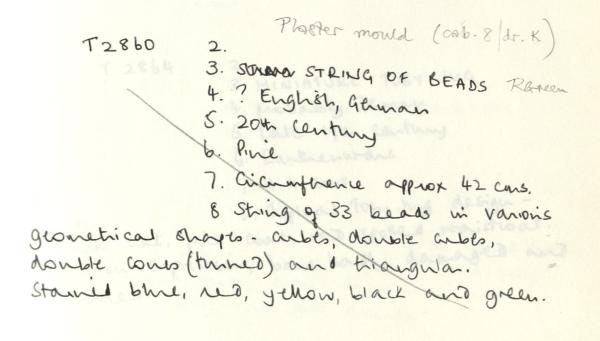 Plaster mould (cab. 8/dr. K)
T2860 2.
3. STRING OF BEADS RGreen
4. ? English, German
5. 20th Century
6. Pine
7. Circumference approx 42 cms.
8 String of 33 beads in various
geometrical shapes - cubes, double cubes,
double cones (turned) and triangular.
Stained blue, red, yellow, black and green.